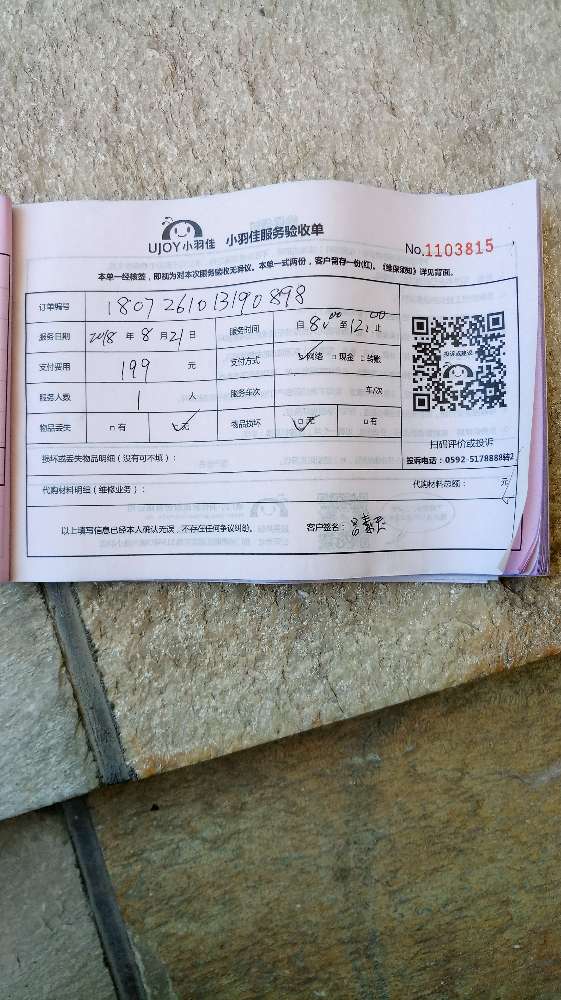 UJOY 小羽佳 小羽佳服务验收单
No.1103815
本单一经核签，即视为对本次服务验收无异议。本单一式两份，客户留存一份(红)。《维保须知》详见背面。
订单编号 180726101319 0898
服务日期 2018 年 8 月 21 日 服务时间 自 8:00 至 12:00 止
支付费用 199 元 支付方式 ☑网络 □现金 □转账
服务人数 1 人 服务车次 车/次
物品丢失 □有 ☑无 物品损坏 ☑无 □有
投诉或建议
扫码评价或投诉
投诉电话：0592-5178888转2
损坏或丢失物品明细（没有可不填）：
代购材料明细（维修业务）： 代购材料总额： 元
以上填写信息已经本人确认无误，不存在任何争议纠纷。 客户签名：